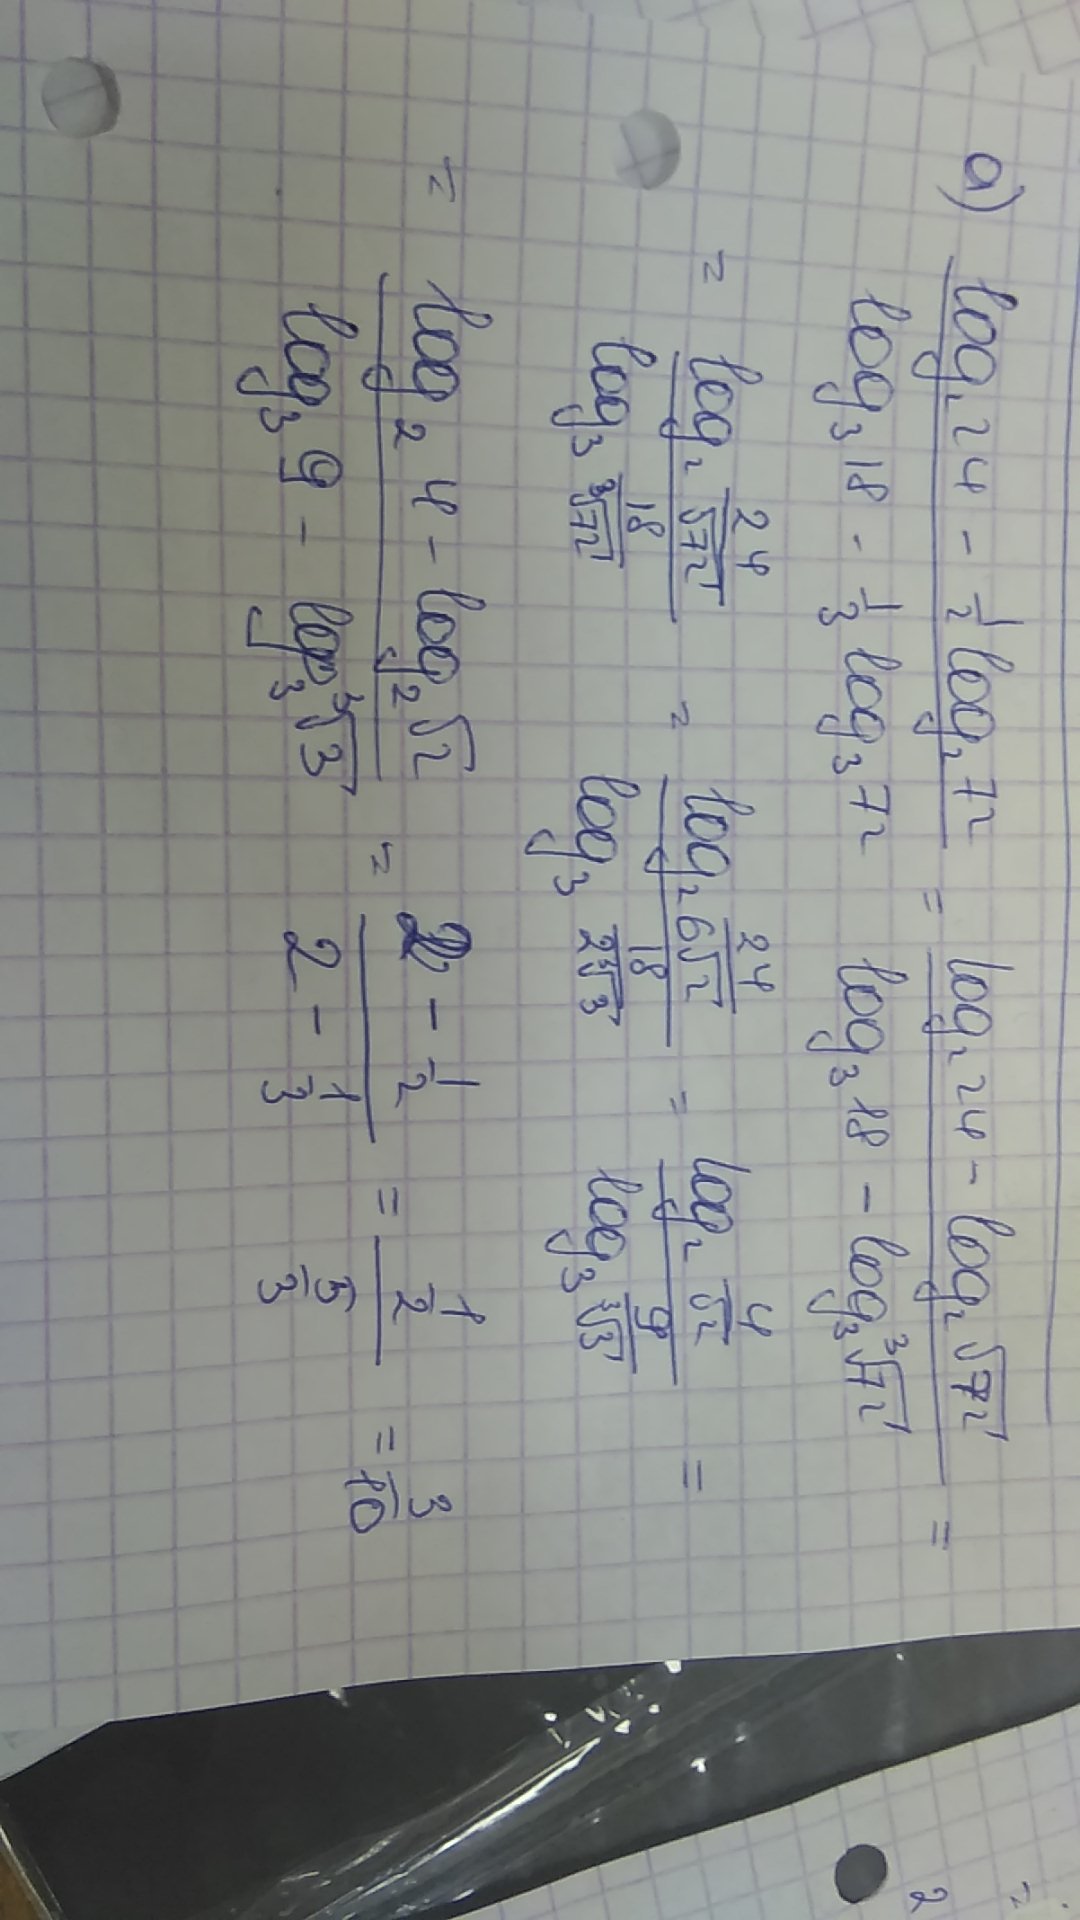 a) (log₂ 24 - 1/2 log₂ 72) / (log₃ 18 - 1/3 log₃ 72) = (log₂ 24 - log₂ √72) / (log₃ 18 - log₃ ³√72) =
= (log₂ 24/√72) / (log₃ 18/³√72) = (log₂ 24/6√2) / (log₃ 18/2³√3) = (log₂ 4/√2) / (log₃ 9/³√3) =
= (log₂ 4 - log₂ √2) / (log₃ 9 - log₃ ³√3) = (2 - 1/2) / (2 - 1/3) = (1/2) / (5/3) = 3/10
=
2